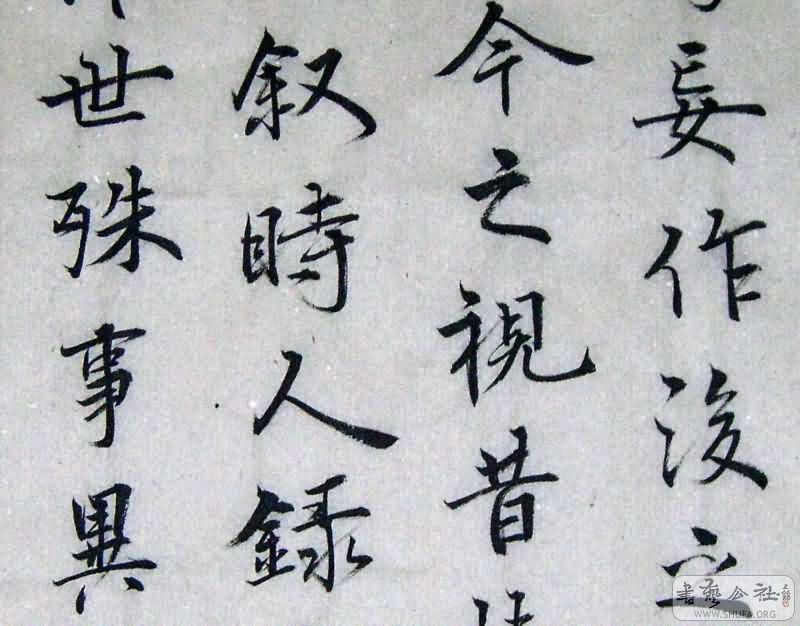 妄作後之
今之視昔
叙時人録
世殊事異
書藝公社
WWW.SHUFA.ORG